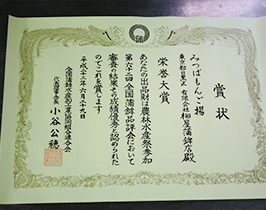 賞状
みつばもんごう揚
東京都目黒区 有限会社 柳屋蒲鉾店殿
栄誉大賞
あなたの出品財は農林水産祭参加
第六十三回全国蒲鉾品評会において
審査の結果その成績優秀と認められた
のでこれを賞します
平成二十二年六月二十九日
全国蒲鉾水産加工業協同組合連合会
代表理事会長 小谷公穂